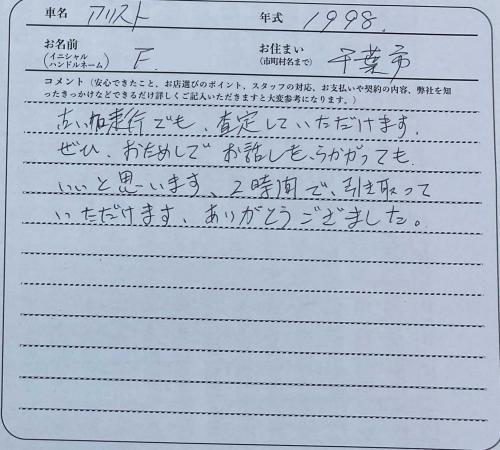 車名 アリスト 年式 1998.
お名前 (イニシャル ハンドルネーム) F. お住まい (市町村名まで) 千葉市
コメント(安心できたこと、お店選びのポイント、スタッフの対応、お支払いや契約の内容、弊社を知
ったきっかけなどできるだけ詳しくご記入いただきますと大変参考になります。)
古い 走行でも、査定していただけます。
ぜひ、おためしで お話しを、うかがっても
いいと思います、2時間で、引き取って
いただけます、ありがとうございました。